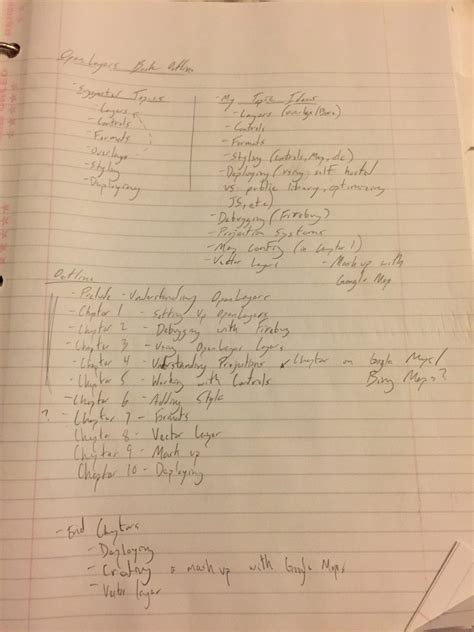 OpenLayers Book Outline
- Suggested Topics
- Layers
- Controls
- Formats
- Overlays
- Styling
- Deploying
- My Topic Ideas
- Layers (overlay/Base)
- Controls
- Formats
- Styling (controls, Map, etc)
- Deploying (using self hosted
vs public library, optimizing
JS, etc)
- Debugging (Firebug)
- Projection Systems
- Map Config (in Chapter 1)
- Vector Layers - Mash up with
Google Map
Outline
- Prelude - Understanding OpenLayers
- Chapter 1 - Setting Up OpenLayers
- Chapter 2 - Debugging with Firebug
- Chapter 3 - Using OpenLayers Layers
- Chapter 4 - Understanding Projections Chapter on Google Maps/
Bing Maps?
- Chapter 5 - Working with Controls
- Chapter 6 - Adding Style
? - Chapter 7 - Formats
Chapter 8 - Vector Layer
Chapter 9 - Mash up
Chapter 10 - Deploying
- End Chapters
- Deploying
- Creating a mash up with Google Maps
- Vector layer